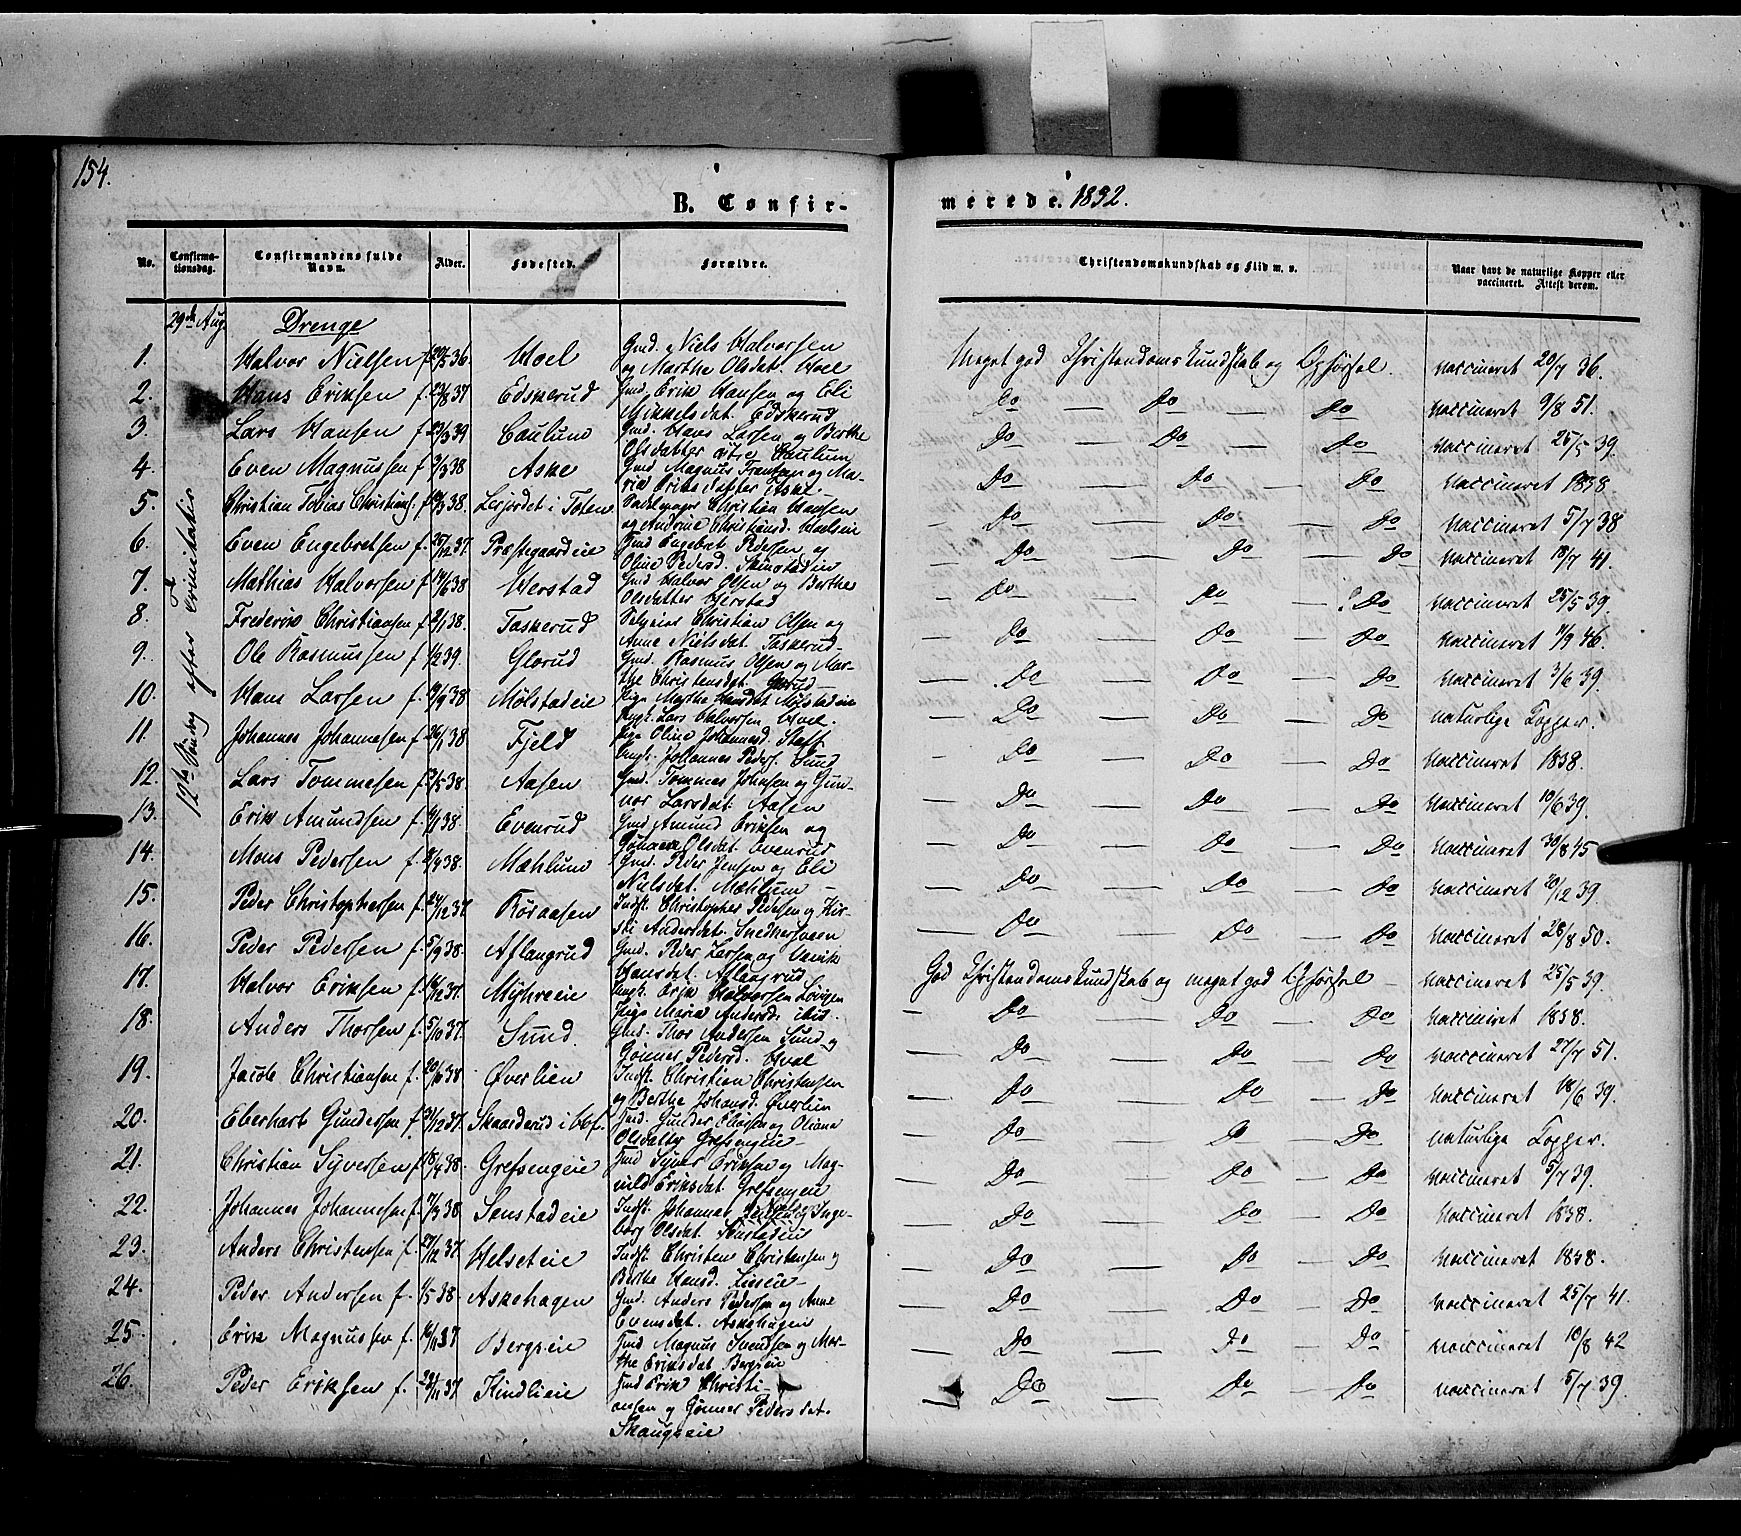 154.
B. Confir-
merede. 1852.
No.
Confirma-
tionsdag.
Confirmandens fulde
Navn.
Alder.
Fødested.
Forældre.
Christendomskundskab og Flid m. v.
Naar havt de naturlige Kopper eller
vaccineret. Attest derom.
29de Aug.
12te Søndag efter Trinitatis
Drenge
1. Halvor Nielsen f. 36 Hoel Gmd. Niels Halvorsen
og Marthe Olsdat. Hoel
Meget god Christendomskundskab og Opførsel. vaccineret 20/7 36.
2. Hans Eriksen f. 23/8 37 Edskerud Gmd. Erik Hansen og Eli
Mikkelsdat. Edskerud
Do — Do — Do vaccineret 9/8 51.
3. Lars Hansen f. 23/3 39 Caulum Gmd. Hans Larsen og Berthe
Olsdatter Caulum
Do — Do — Do vaccineret 25/5 39.
4. Even Magnussen f. 38 Aske Gmd Magnus Frantsen og Ma-
ria Eriksdatter Aske.
Do — Do — Do vaccineret 1838
5. Christian Tobias Christians. f. 38. Lerjordet i Toten Christian Hansen
og Andrine Christiansd.
— Do — Do — Do vaccineret 5/7 38
6. Even Engebretsen f. 25/12 37. Præstegaardeie Gmd Engebret Pedersen og
Oline Pedersd.
— Do — Do — Do vaccineret 10/7 41.
7. Mathias Halvorsen f. 14/6 38 Herstad Gmd Halvor Olsen og Berthe
Olsdatter Herstad
— Do — Do — Do vaccineret 25/5 39.
8. Frederik Christiansen f. 38. Taskerud Selveier Christian Olsen og
Anne Nielsdat. Taskerud
— Do — Do — Do vaccineret 46.
9. Ole Rasmussen f. 39. Glorud Gmd. Rasmus Olsen og Mar-
the Christensdat. Glorud
— Do — Do — Do vaccineret 3/6 39.
10. Hans Larsen f. 38 Mølstadeie Pige Marthe Hansdat Mølstadeie
Ungk. Lars Halvorsen Hoel.
— Do — Do — Do naturlige Kopper.
11. Johannes Johannesen f. 38 Fjeld Pige Oline Johannesd.
Ungk. Johannes Peders. Sund
— Do — Do — Do vaccineret 1838.
12. Lars Tommesen f. 38. Aasen Gmd. Tommes Johnsen og Gun-
nor Larsdat. Aasen
— Do — Do — Do vaccineret 10/6 39.
13. Erik Amundsen f. 38. Evenrud Gmd Amund Eriksen og
Olsdat. Evenrud
— Do — Do — Do vaccineret 30/8 45
14. Mons Pedersen f. 38. Mæhlum Gmd. Peder Jensen og Eli
Nielsdat. Mæhlum —
— Do — Do — Do vaccineret 20/12 39.
15. Peder Christophersen f. 24/12 37. Røraasen Indst. Christopher Pedersen og Kir-
sti Andersdat.
— Do — Do — Do vaccineret 28/8 50.
16. Peder Pedersen f. 5/9 38. Aflangrud Gmd. Peder Larsen og
Hansdat. Aflangrud
God Christendomskundskab og meget god Opførsel — vaccineret 25/5 39.
17. Halvor Eriksen f. 37. Myhreeie Ungk. Erik Halvorsen
Pige Maria Andersd.
— Do — Do — Do vaccineret 1838.
18. Anders Thorsen f. 5/10 37. Sund Gmd. Thor Andersen Sund og
Gønner Pedersd. Hval
— Do — Do — Do vaccineret 27/7 51.
19. Jacob Christiansen f. 38 Øverlien Indst. Christian Christensen
og Berthe Johansd. Øverlien
— Do — Do — Do vaccineret 18/6 39.
20. Eberhart Gundersen f. 31/12 37. Skaarderud i Gunder Eliassen og Oliane
Olsdatter Grefsengeie —
— Do — Do — Do naturlige Kopper.
21. Christian Syversen f. 38. Grefsengeie Gmd Syver Eriksen og Mag-
nild Eriksdat. Grefsengeie
— Do — Do — Do vaccineret 5/7 39.
22. Johannes Johannesen f. 38 Senstadeie Indst. Johannes Inge-
borg Olsdat.
— Do — Do — Do vaccineret 1838.
23. Anders Christensen f. 37. Helseteie Indst. Christen Christensen og
Berthe Hansd.
— Do — Do — Do vaccineret 1838.
24. Peder Andersen f. 1/5 38. Askehagen Gmd. Anders Pedersen og Anne
Evensdat. Askehagen
— Do — Do — Do vaccineret 25/7 41.
25. Erik Magnussen f. 16/11 37. Bergseie Gmd Magnus Svendsen og Mar-
the Eriksdat Bergseie
— Do — Do — Do vaccineret 10/8 42
26. Peder Eriksen f. 37. Kindlieie Gmd Erik Christi-
ansen og Gønner Pedersdat.
Skaugseie
— Do — Do — Do vaccineret 5/7 39.